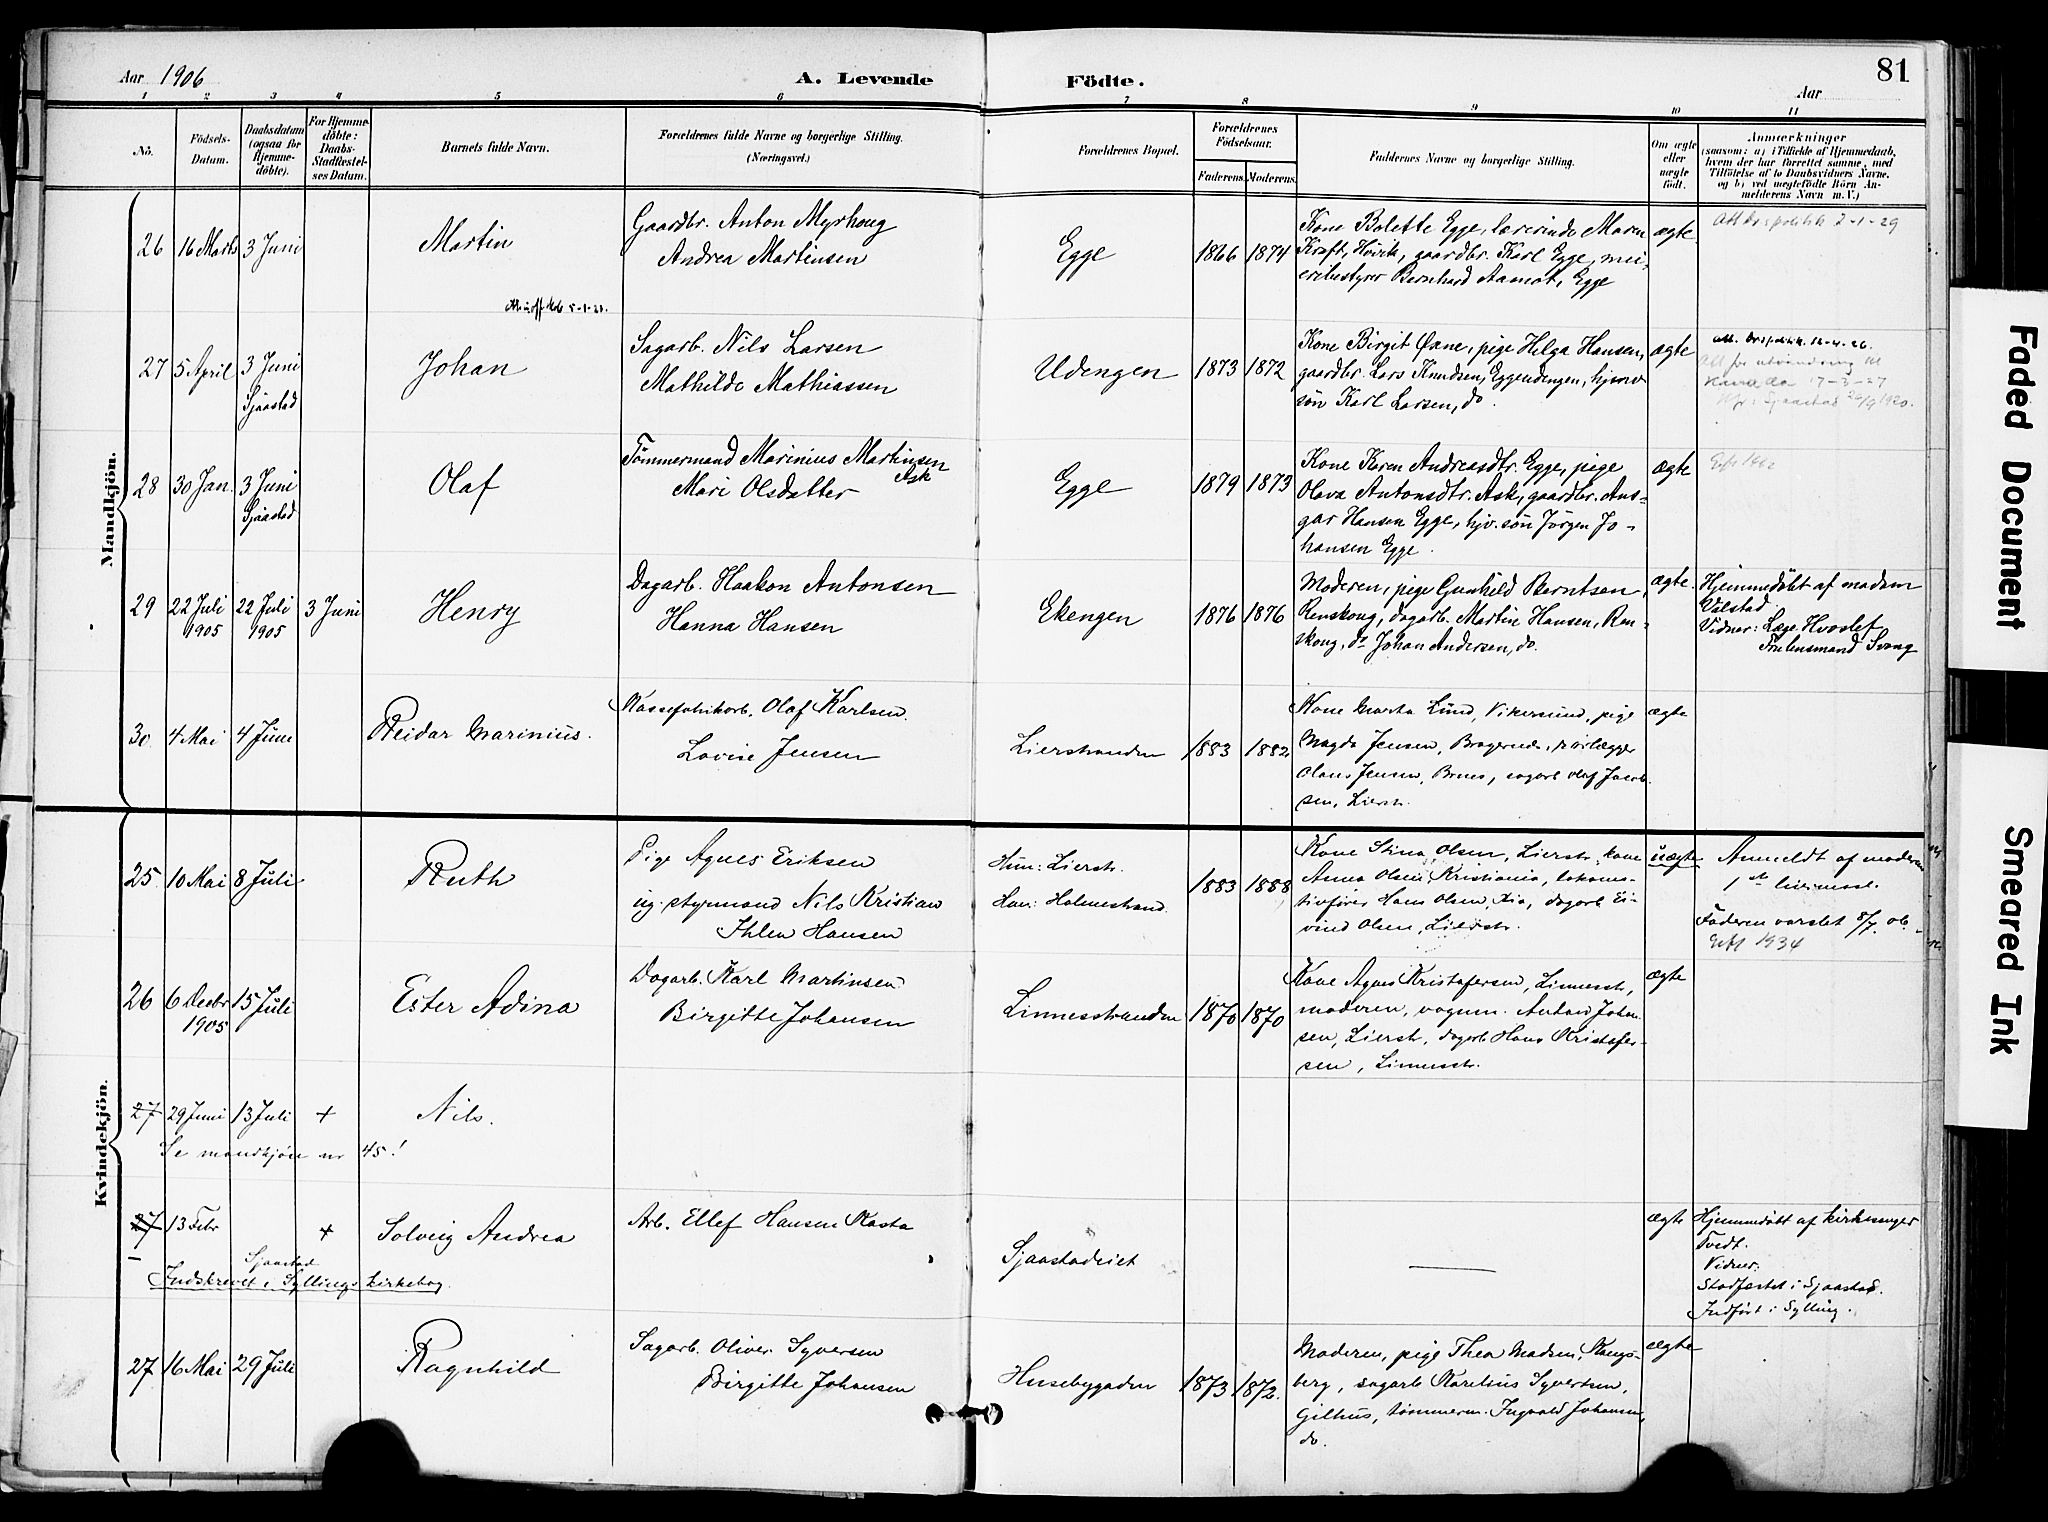 Aar 1906
A. Levende Födte.
81
Aar
1 2 3 4 5 6 7 8 9 10 11
Nö.
Födsels-Datum.
Daabsdatum (ogsaa for Hjemmedöbte).
For Hjemmedöbte: Daabs-Stadfæstelses Datum.
Barnets fulde Navn.
Forældrenes fulde Navne og borgerlige Stilling. (Næringsvei.)
Forældrenes Bopæl.
Forældrenes Födselsaar.
Faderens. Moderens.
Faddernes Navne og borgerlige Stilling.
Om ægte eller uægte födt.
Anmærkninger
(saasom: a) i Tilfælde af Hjemmedaab, hvem der har forrettet samme, med Tilföielse af to Daabsvidners Navne. og b) ved uægtefödte Börn Anmelderens Navn m.V.)
Mandkjön.
26 16 Marts 3 Juni
Martin
Gaardbr. Anton Myrhoug
Andrea Martinsen
Egge
1866 1874
Kone Bolette Egge, lærerinde Maren
Kraft, Hövik, gaardbr. Karl Egge, mei-
eribestyrer Bernhard Aamot, Egge
ægte
2-1-29
5-1-21.
27 5 April 3 Juni
Sjaastad
Johan
Sagarb. Nils Larsen
Mathilde Mathiassen
Udengen
1873 1872
Kone Birgit Øxne, pige Helga Hansen,
gaardbr. Lars Knudsen, Eggeudengen, hjemv
søn Karl Larsen, do.
ægte
Att. for utvandring til
Kanada 17-3-27
Sjaastad 1920.
28 30 Jan. 3 Juni
Sjaastad
Olaf
Tömmermand Marinius Martinsen
Ask
Mari Olsdatter
Egge
1879 1873
Kone Karen Andreasdtr. Egge, pige
Olava Antonsdtr. Ask, gaardbr. Ans-
gar Hansen Egge, hjv. søn Jörgen Jo-
hansen Egge.
ægte
29 22 Juli 1905 22 Juli 1905 3 Juni
Henry
Dagarb. Haakon Antonsen
Hanna Hansen
Ekengen
1876 1876
Moderen, pige Gunhild Berntsen,
Renskoug, dagarb. Martin Hansen, Ren-
skoug, do Johan Andersen, do.
ægte.
Hjemmedøbt af madam
Vilstad.
Vidner: Læge Hvoslef
Fru lensmand Svang
30 4 Mai 4 Juni
Reidar Marinius.
Kassefabrikarb. Olaf Karlsen.
Lovise Jensen
Lierstranden
1883 1882
Kone Marta Lund, Vikersund, pige
Magda Jensen, Bragernes, rörlægger
Olaus Jensen, Brnes, sagarb Olaf Jacob-
sen, Lierstr.
ægte
Kvindekjön.
25 10 Mai 8 Juli
Ruth
Pige Agnes Eriksen
ug. styrmand Nils Kristian
Ihlen Hansen
Hun: Lierstr.
Han: Holmestrand.
1883 1888
Kone Stina Olsen, Lierstr, kone
Anna Olsen, Kristiania, lokomo-
tivförer Hans Olsen, Kra, dagarb Ei-
vind Olsen, Lierstr.
uægte
Anmeldt af moderen
Faderen varslet 8/7. 06.
Gift 1934
26 6 Decbr 1905 15 Juli
Ester Adina
Dagarb. Karl Martinsen
Birgitte Johansen
Linnesstranden
1870 1870
Kone Agnes Kristofersen, Linnesstr,
moderen, vognm. Anton Johan-
sen, Lierstr, dagarb Hans Kristofer-
sen, Linnesstr.
ægte
27 29 Juni 13 Juli +
Nils.
Se mandkjön nr 45!
27 13 Febr +
Solveig Andrea
Arb. Ellef Hansen Kasta
Sjaastadeiet
ægte
Hjemmedøbt af kirkesanger
Tvedt.
Vidner:
Stadfæstet i Sjaastad.
Indfört i Sylling.
Sjaastad
Indskrevet i Syllings kirkebog.
27 16 Mai 29 Juli
Ragnhild
Sagarb. Oliver Syversen
Birgitte Johansen
Husebygaden
1873 1872.
Moderen, pige Thea Madsen, Kongs-
berg, sagarb Karelius Syvertsen,
Gilhus, tömmerm. Ingvald Johansen,
do.
ægte
Faded Document
Smeared Ink